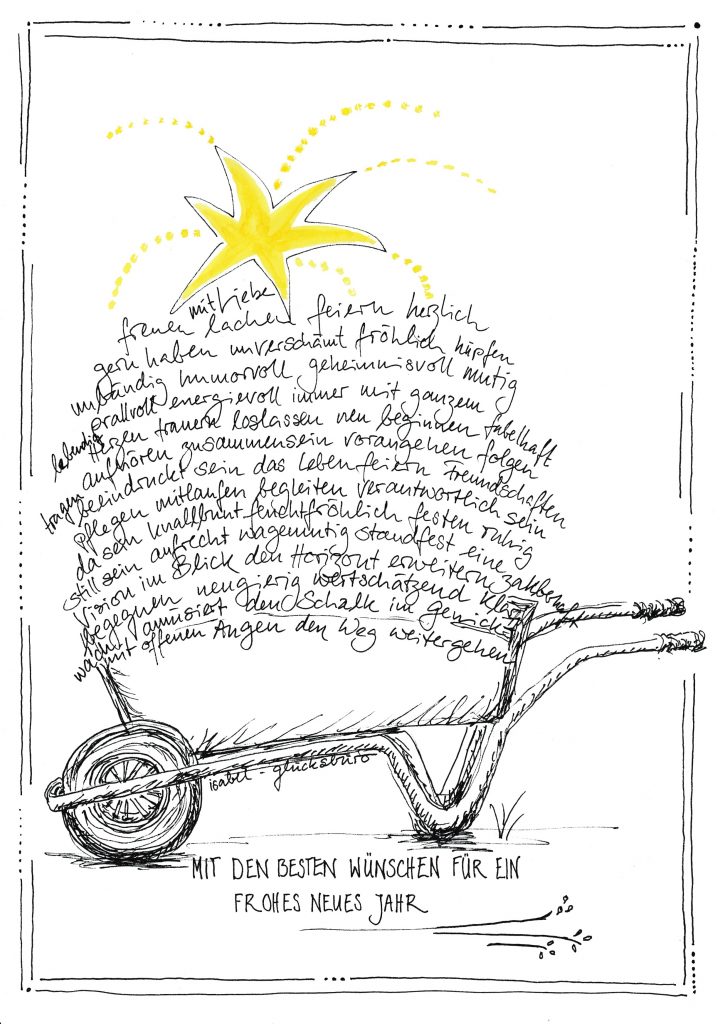 mit Liebe
freuen lachen feiern herzlich
gern haben unverschämt fröhlich hüpfen
unbändig humorvoll geheimnisvoll mutig
prallvoll energievoll immer mit ganzem
lebendig Herzen trauern loslassen neu beginnen fabelhaft
aufhören zusammensein vorangehen folgen
tragen beeindruckt sein das Leben feiern Freundschaften
pflegen mitlaufen begleiten verantwortlich sein
da sein knallbunt feuchtfröhlich festen ruhig
still sein aufrecht wagemutig standfest eine
Vision im Blick den Horizont erweitern zauberhaft
begegnen neugierig wertschätzend klar
wach amüsiert den Schalk im Genick
mit offenen Augen den Weg weitergehen
isabel - glücksbüro
MIT DEN BESTEN WÜNSCHEN FÜR EIN
FROHES NEUES JAHR